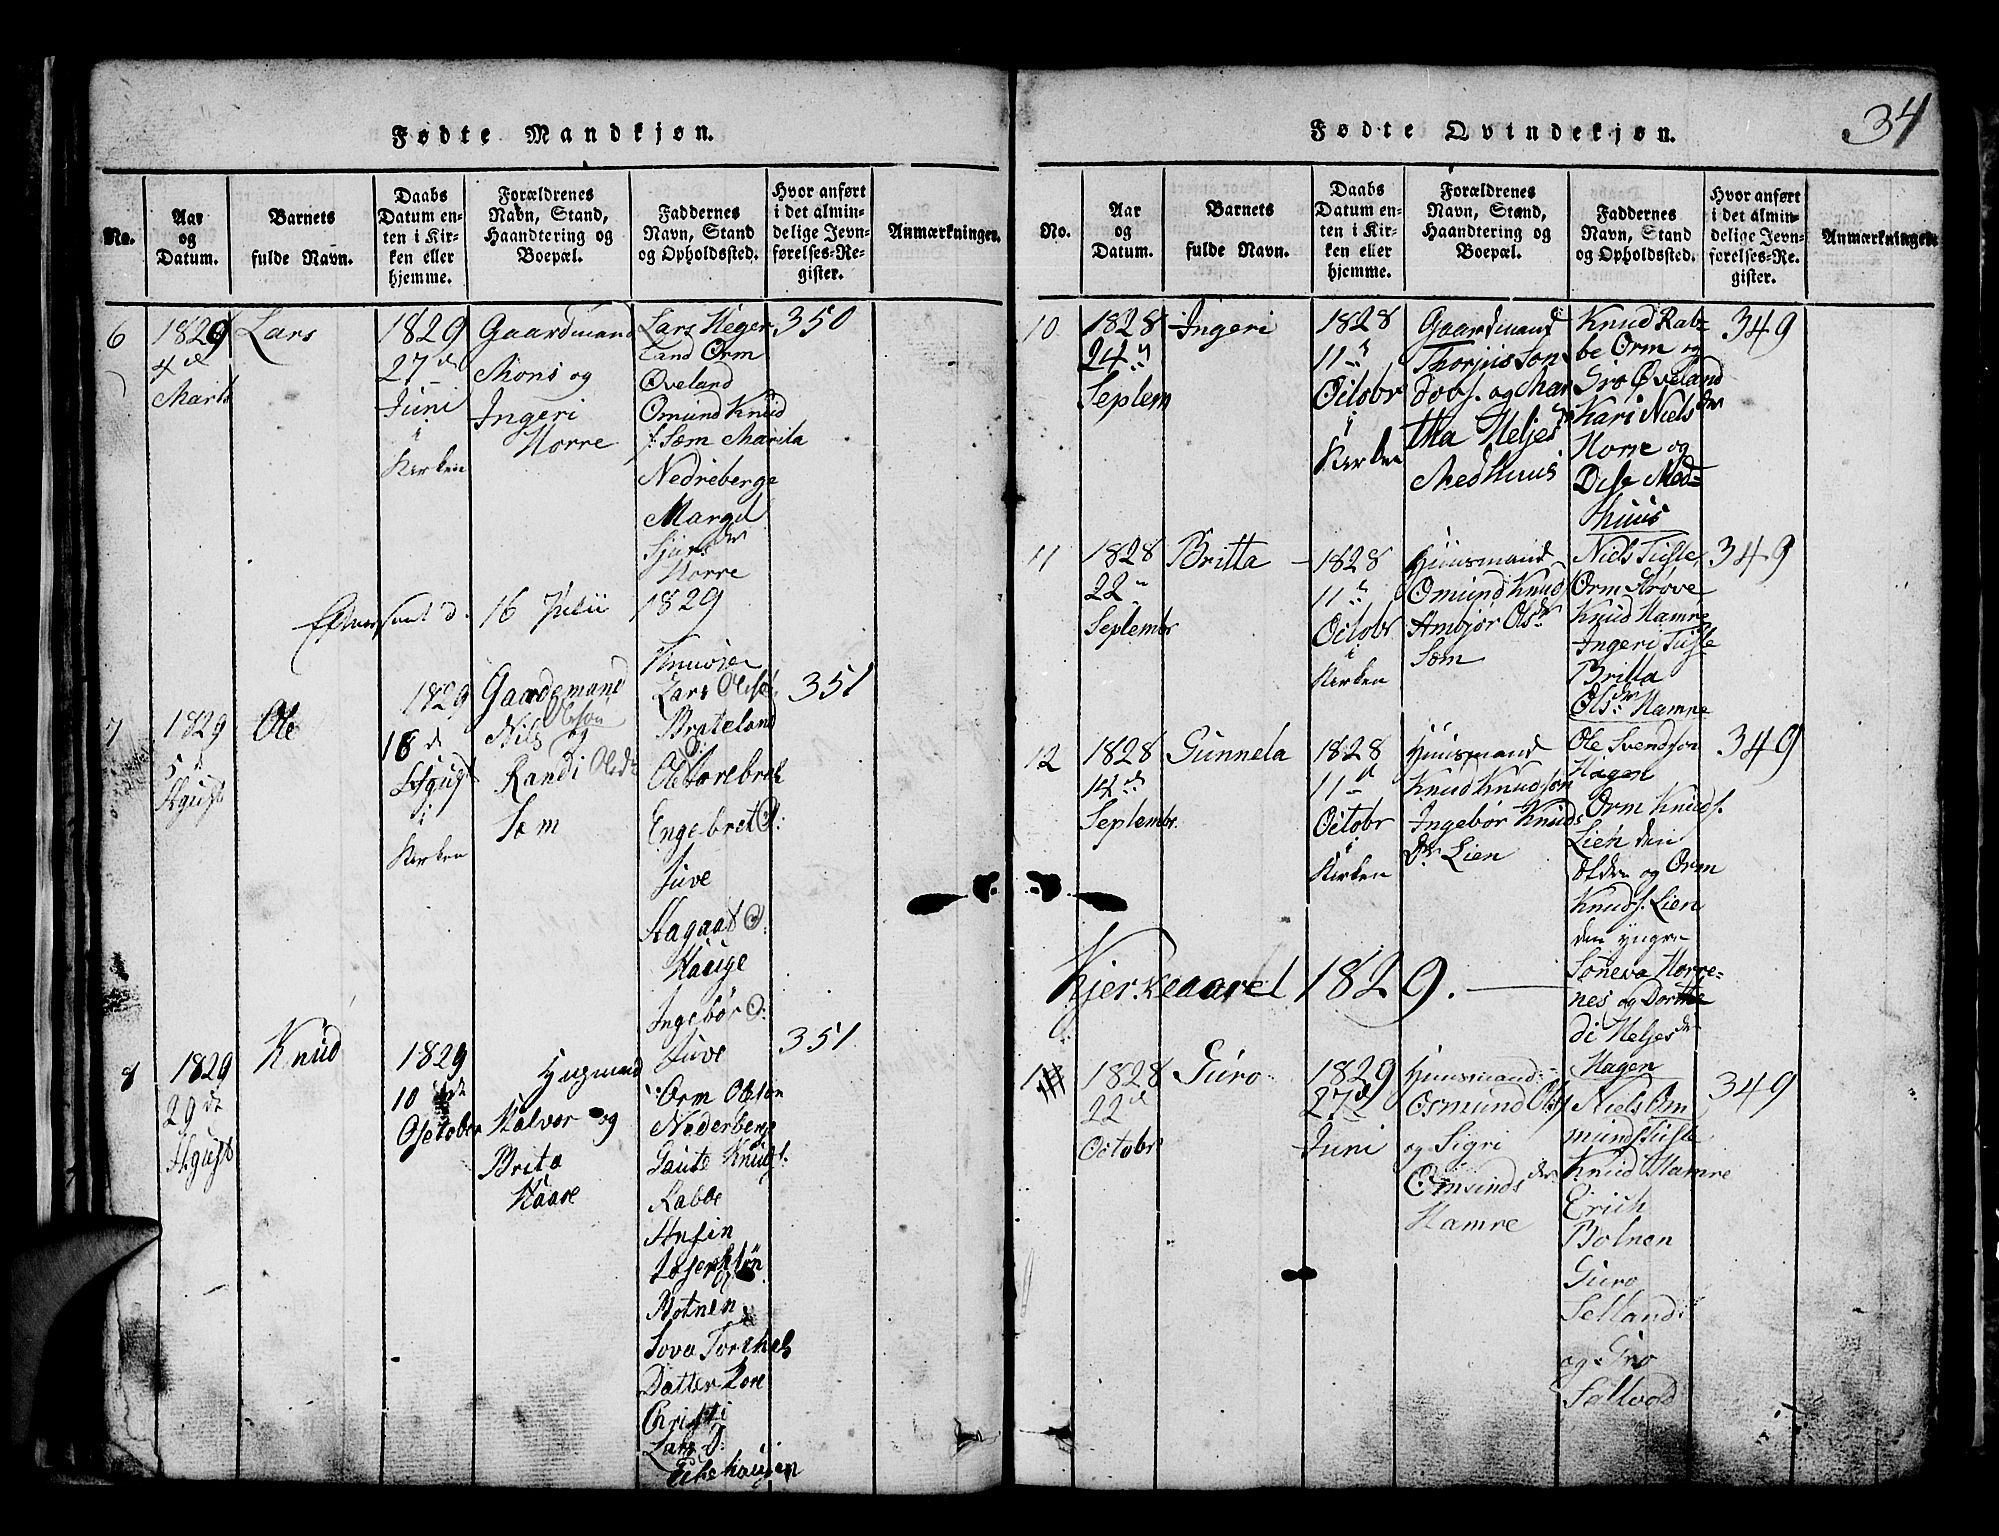 Fødte Mandkjøn.
No.
Aar
og
Datum.
Barnets
fulde Navn.
Daabs
Datum en-
ten i Kir-
ken eller
hjemme.
Forældrenes
Navn, Stand,
Haandtering og
Boepæl.
Faddernes
Navn, Stand
og Opholdssted.
Hvor anført
i det almin-
delige Jevn-
førelses-Re-
gister.
Anmærkninger.
6
1829
4de
Marts
Lars
1829
27de
Juni
i
Kirken
Gaardmand
Mons og
Ingeri
Norre
Lars Heger
land Orm
Øveland
Omund Knud
s. Sæm Marita
Nedreberge
Margit
Sjurs dtr
Norre
350
16 Julii 1829
7
1829
5
Agust
Ole
1829
18de
Agust
i
Kirken
Gaardemand
Nils Olesøn
og
Randi Olsd
Sæm
Lars Olss
Brateland
Ole
Engebret O:
Juve
Aagaat O:
Hauge
Ingebør O:
Juve
351
8
1829
29 de
Agust
Knud
1829
10 de
October
Halvor og
Brita
Kaare
Orm Olsøn
Nederberge
Gaute Knuds.
Rabbe
Anfin
Botnen
Torchels
Datter Kore
Christi
Lars D:
351
Fødte Qvindekjøn.
34
No.
Aar
og
Datum.
Barnets
fulde Navn.
Daabs
Datum en-
ten i Kir-
ken eller
hjemme.
Forældrenes
Navn, Stand,
Haandtering og
Boepæl.
Faddernes
Navn, Stand
og Opholdssted.
Hvor anført
i det almin-
delige Jevn-
førelses-Re-
gister.
Anmærkninger
10
1828
24
Septem
Ingeri
1828
11
Octobr
i
Kirken
Gaardmand
og Mar
tha Heljes
Medhuus
Knud Rab-
be Orm og
Gro Øveland
Kari Niels dtr
Norre og
Med-
huus
349
11
1828
22
Septembr
Britta
1828
11
Octobr
i
Kirken
Huusmand
Omund Knuds
Ambjør Ols dr
Sæm
Niels Tufte
Orm Røve
Knud Hamre
Ingeri Tufte
Britta
Ols dtr Hamre
349
12
1828
14
Septembr
Gunnela
1828
11
Octobr
i
Kirken
Huusmand
Knud Knudsøn
Ingebør Knuds
Dr Lien
Ole Svendsøn
Hagen
Orm Knuds.
Lien den
ældre og Orm
Knuds. Lien
den yngre
Søneva Norre-
nes og Dorthe
di Heljes dr
Hagen
349
Kjerkeaaret 1829.
1
1828
22
Octobr
Guro
1829
27de
Juni
Huusmand
Osmund Ols
og Sigri
Omunds dr
Hamre
Niels Om
munds Tufte
Knud Hamre
Erich
Botnen
Guro
Selland
og Gro
Sellvold
349